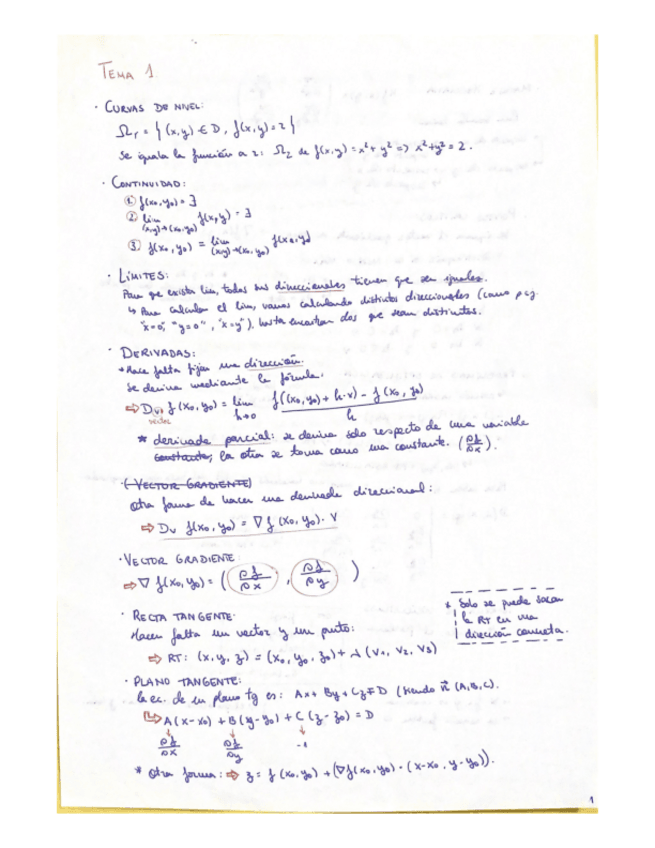 TEMA 1
· CURVAS DE NIVEL:
Ω_r = { (x,y) ∈ D, f(x,y) = z }
Se iguala la función a z: Ω_2 de f(x,y) = x² + y² => x² + y² = 2.
· CONTINUIDAD:
① f(x₀,y₀) = ∃
② lim (x,y)→(x₀,y₀) f(x,y) = ∃
③ f(x₀,y₀) = lim (x,y)→(x₀,y₀) f(x,y)
· LÍMITES:
Para que exista lim, todas sus direccionales tienen que ser iguales.
↳ Para calcular el lim, vamos calculando distintos direccionales (como p.ej.
"x=0", "y=0", "x=y"), hasta encontrar dos que sean distintos.
· DERIVADAS:
* Hace falta fijar una dirección.
Se deriva mediante la fórmula:
⇨ D_v f(x₀,y₀) = lim h→0 f((x₀,y₀) + h·v) - f(x₀,y₀) / h
vector
* derivada parcial: se deriva solo respecto de una variable
constante, la otra se toma como una constante. (∂f/∂x).
· (VECTOR GRADIENTE)
otra forma de hacer una derivada direccional:
⇨ D_v f(x₀,y₀) = ∇f(x₀,y₀) · v
· VECTOR GRADIENTE:
⇨ ∇f(x₀,y₀) = ( ∂f/∂x , ∂f/∂y )
· RECTA TANGENTE:
Hacen falta un vector y un punto:
⇨ RT: (x,y,z) = (x₀,y₀,z₀) + λ (v₁, v₂, v₃)
* Solo se puede sacar
la RT en una
dirección concreta.
· PLANO TANGENTE:
la ec. de un plano tg es: Ax + By + Cz = D (siendo n⃗ (A,B,C).
↳ A(x-x₀) + B(y-y₀) + C(z-z₀) = D
∂f/∂x ∂f/∂y -1
* Otra forma: ⇨ z = f(x₀,y₀) + (∇f(x₀,y₀) · (x-x₀, y-y₀)).
1